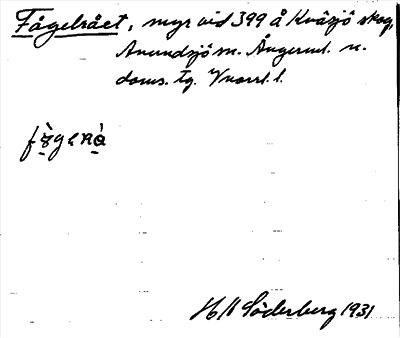 Fågelrået, myr vid 399 å Kvåsjö skog,
Anundsjö sn. Ångerml. n.
doms. tg. Vnorrl. l.
Söderberg 1931